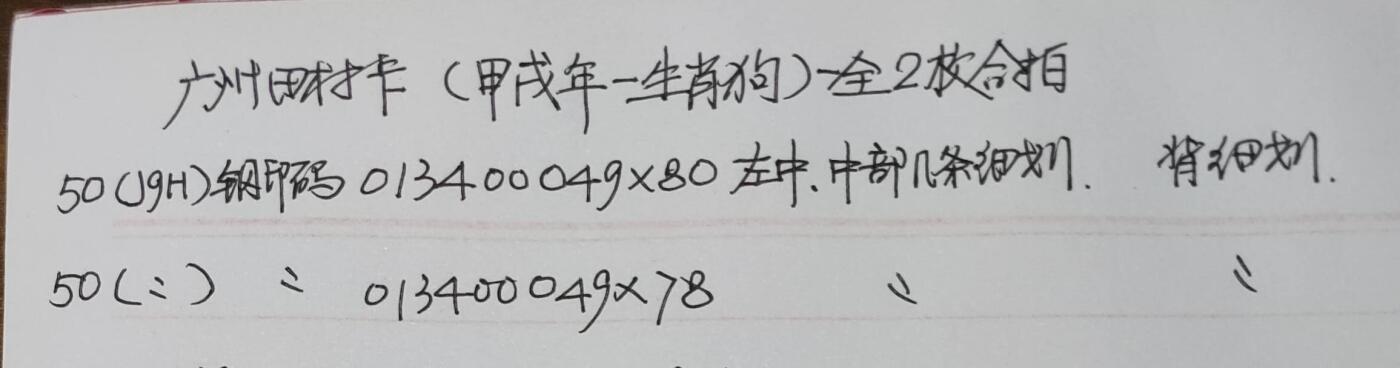 广州田村卡（甲戌年-生肖狗）-全2枚合拍
50(J9H)钢印码 013400049×80 左中、中部几条细划. 背细划.
50(〃) 〃 013400049×78 〃 〃